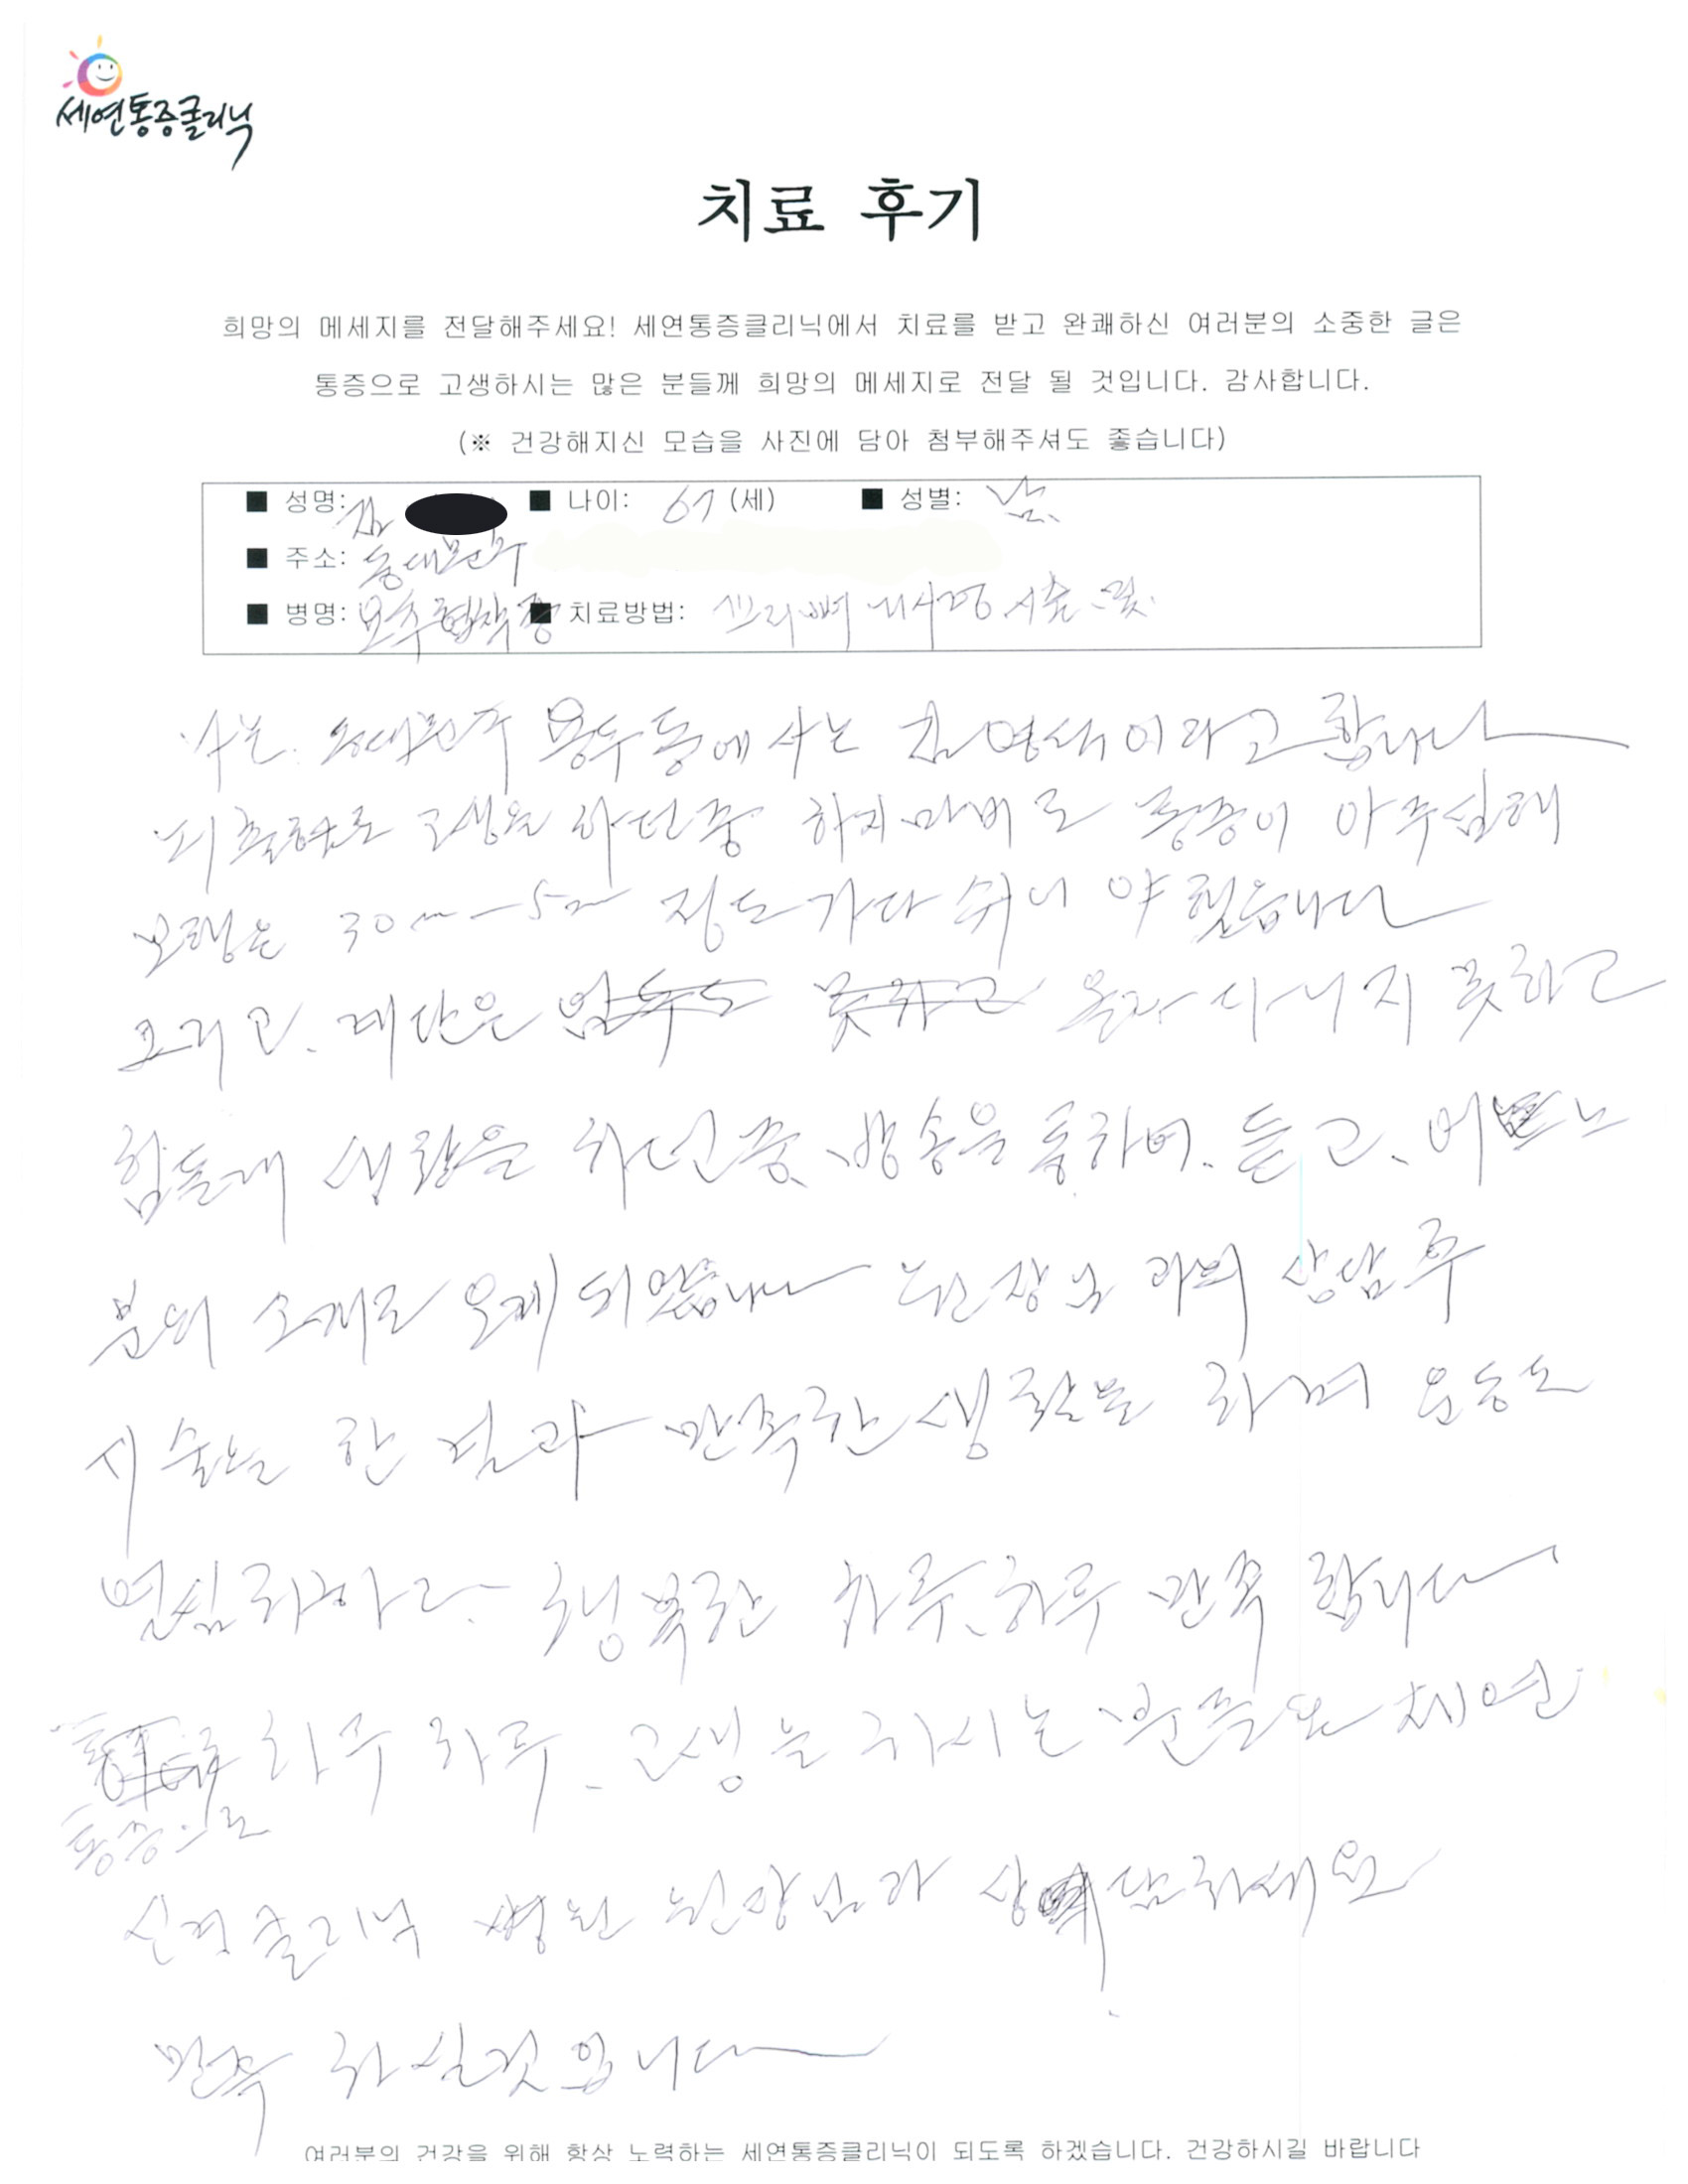 세연통증클리닉
치료 후기
희망의 메세지를 전달해주세요! 세연통증클리닉에서 치료를 받고 완쾌하신 여러분의 소중한 글은
통증으로 고생하시는 많은 분들께 희망의 메세지로 전달 될 것입니다. 감사합니다.
(※ 건강해지신 모습을 사진에 담아 첨부해주셔도 좋습니다)
■ 성명: 김 ■ 나이: 67 (세) ■ 성별: 남
■ 주소: 동대문구
■ 병명: 요추협착증 ■ 치료방법: 꼬리뼈 내시경 시술 및
나는 동대문구 용두동에 사는 김영석이라고 합니다
뇌출혈로 고생을 하던중 하지마비로 통증이 아주심해
보행은 30m-5m 정도 가다 쉬니야 했습니다
그리고. 계단은 올라 다니지 못하고
힘들게 생활을 하던중 방송을 통하여. 듣고.
분의 소개로 오게 되었습니다 원장님 과의 상담후
시술을 한 결과 만족한 생활을 하며 운동도
열심히하다. 행복한 하루.하루 만족 합니다
통증으로 하루 하루. 고생을 하시는 분들은 세연
신경클리닉 병원 원장님과 상담하세요
만족 하실것 입니다
여러분의 건강을 위해 항상 노력하는 세연통증클리닉이 되도록 하겠습니다. 건강하시길 바랍니다